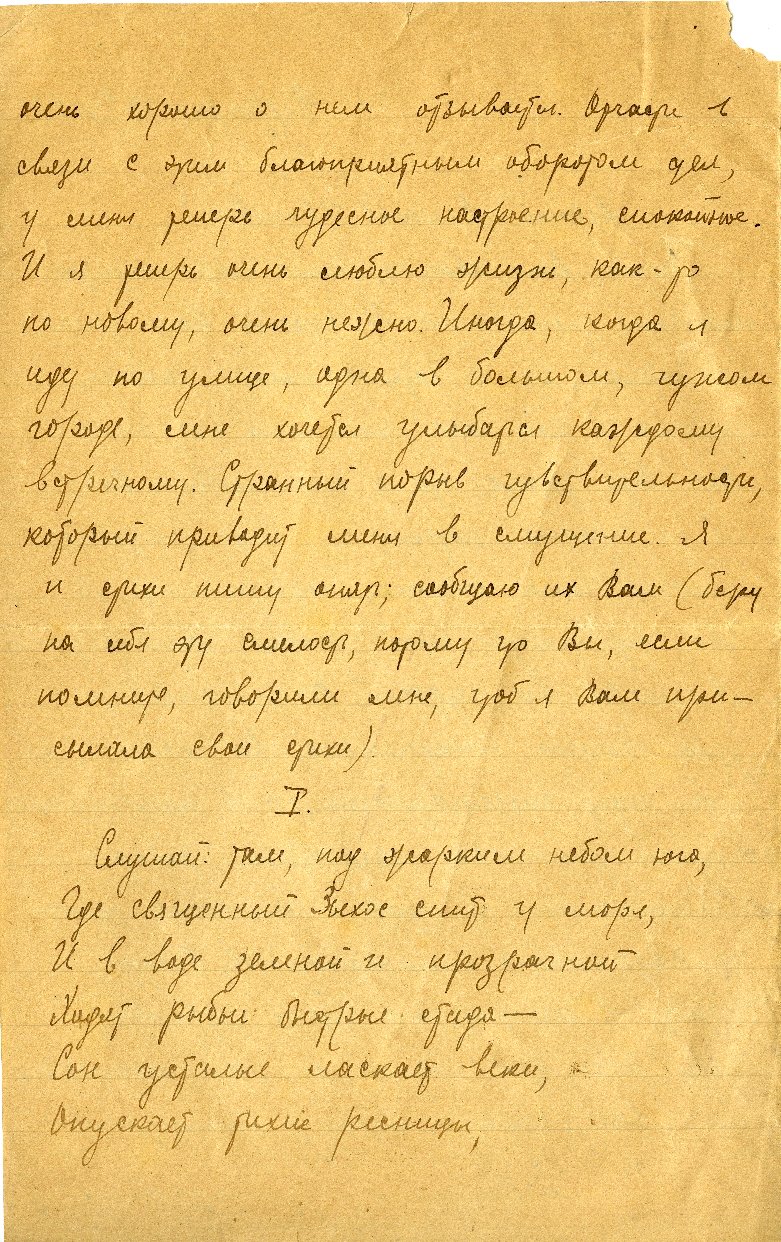 очень хорошо о нем отзывается. Отчасти в
связи с этим благоприятным оборотом дел,
у меня теперь чудесное настроение, спокойное.
И я теперь очень люблю жизнь, как-то
по новому, очень нежно. Иногда, когда я
иду по улице, одна в большом, чужом
городе, мне хочется улыбаться каждому
встречному. Странный порыв чувствительности,
который приводит меня в смущение. Я
и стихи пишу опять; сообщаю их Вам (беру
на себя эту смелость, потому что Вы, если
помните, говорили мне, чтоб я Вам при-
сылала свои стихи)
I.
Слушай: там, под жарким небом юга,
Где священный Зыхос спит у моря,
И в воде зеленой и прозрачной
Ходят рыбьи быстрые стада —
Сон усталые ласкает веки,
Опускает тихие ресницы,